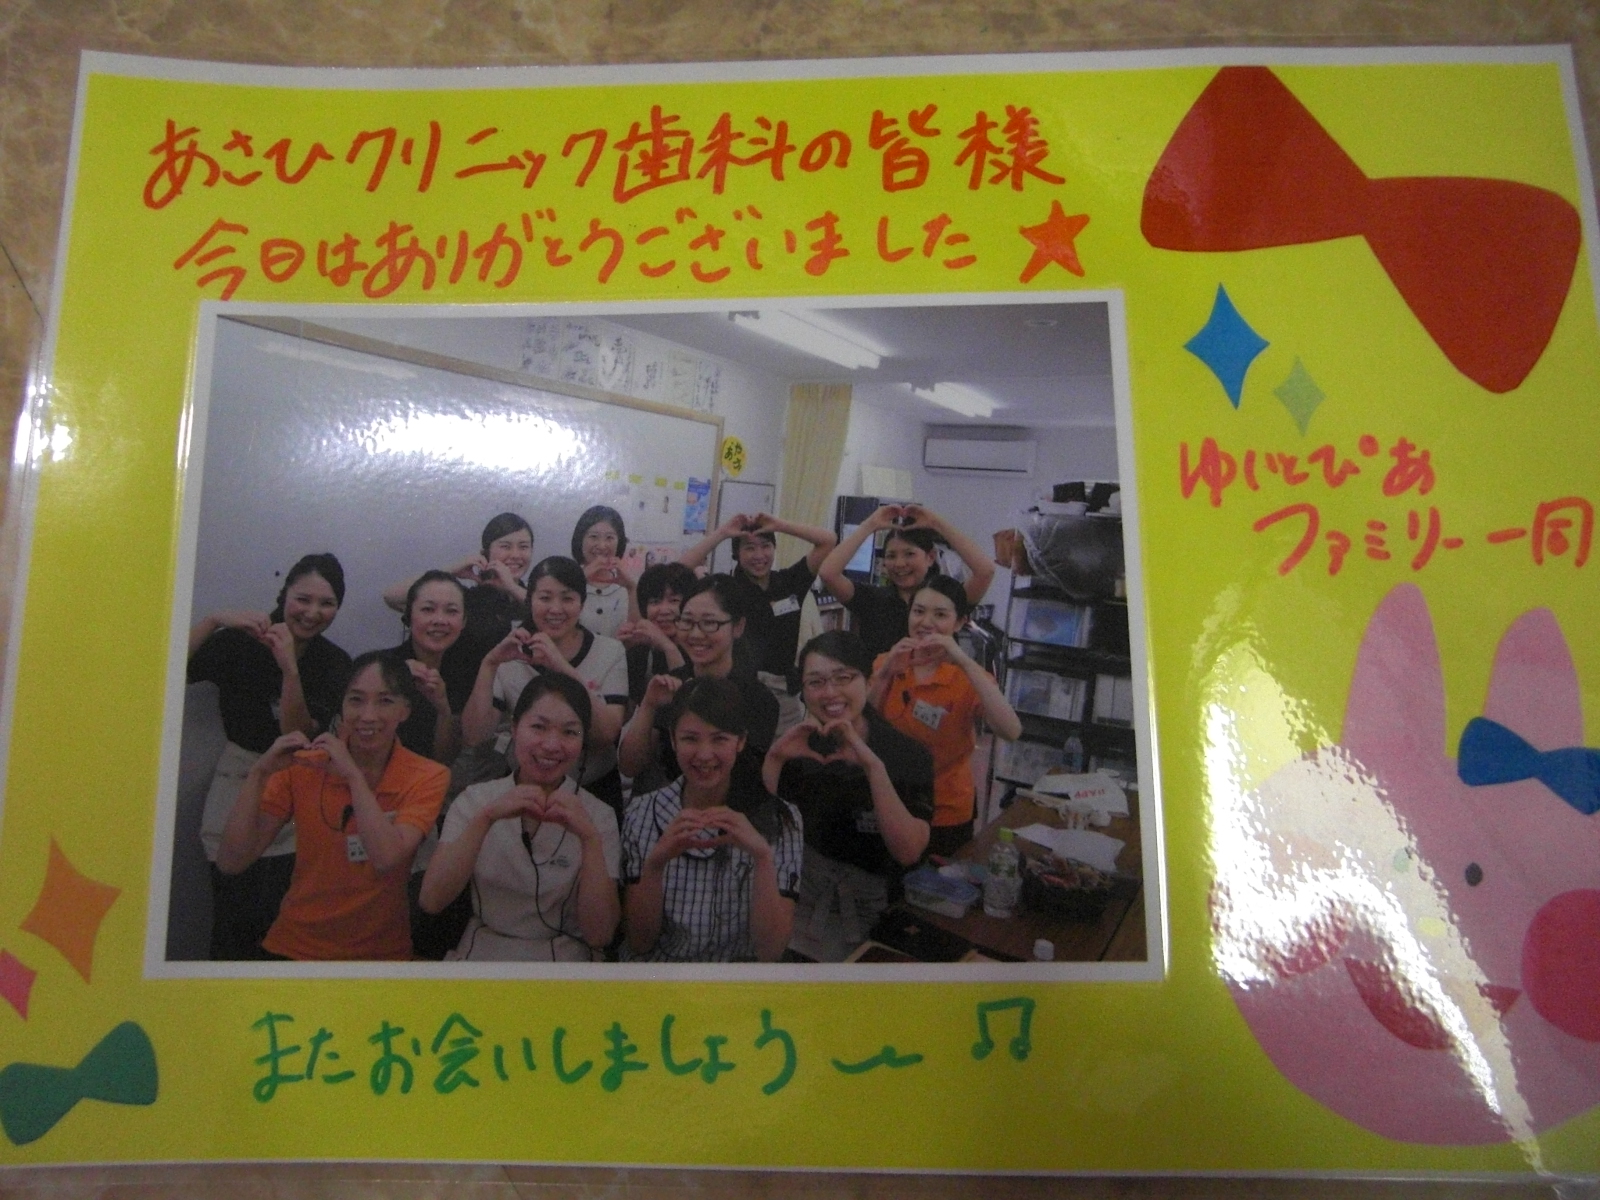 あさひクリニック歯科の皆様
今日はありがとうございました★
ゆいとぴあ
ファミリー一同
またお会いしましょう〜♫